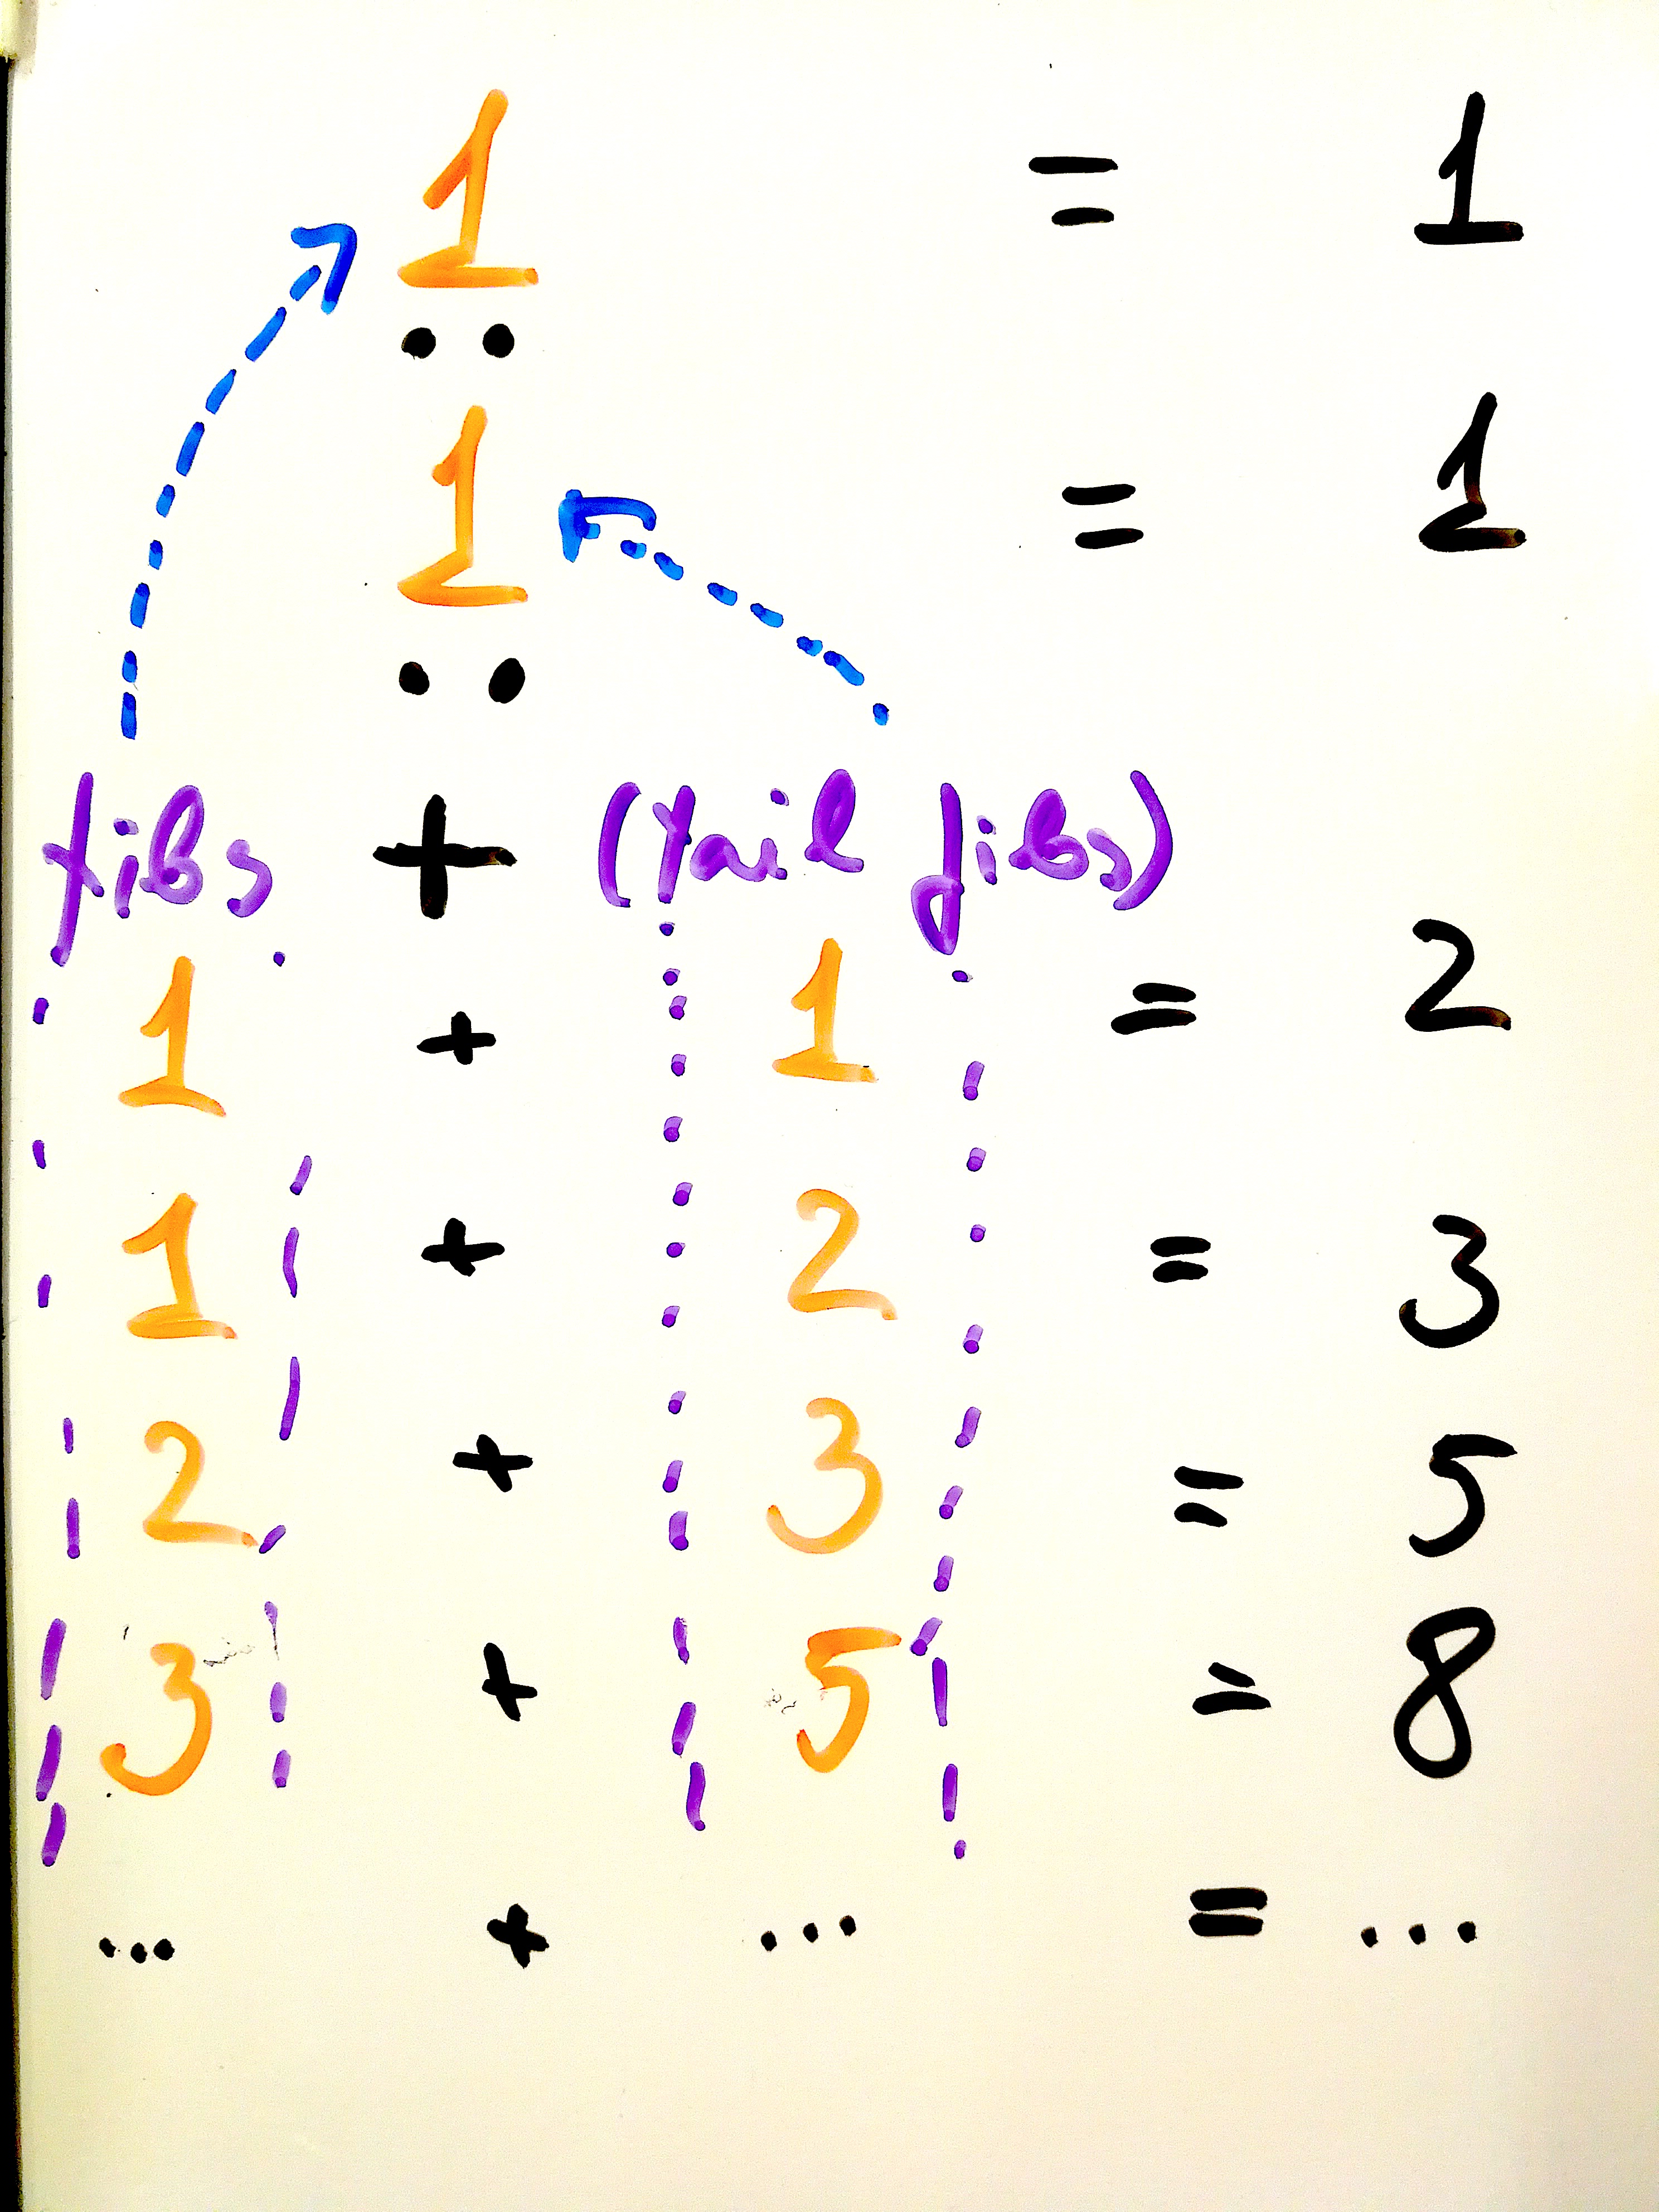 1 = 1
: 
1 = 1
:
fibs + (tail fibs)
1 + 1 = 2
1 + 2 = 3
2 + 3 = 5
3 + 5 = 8
... + ... = ...